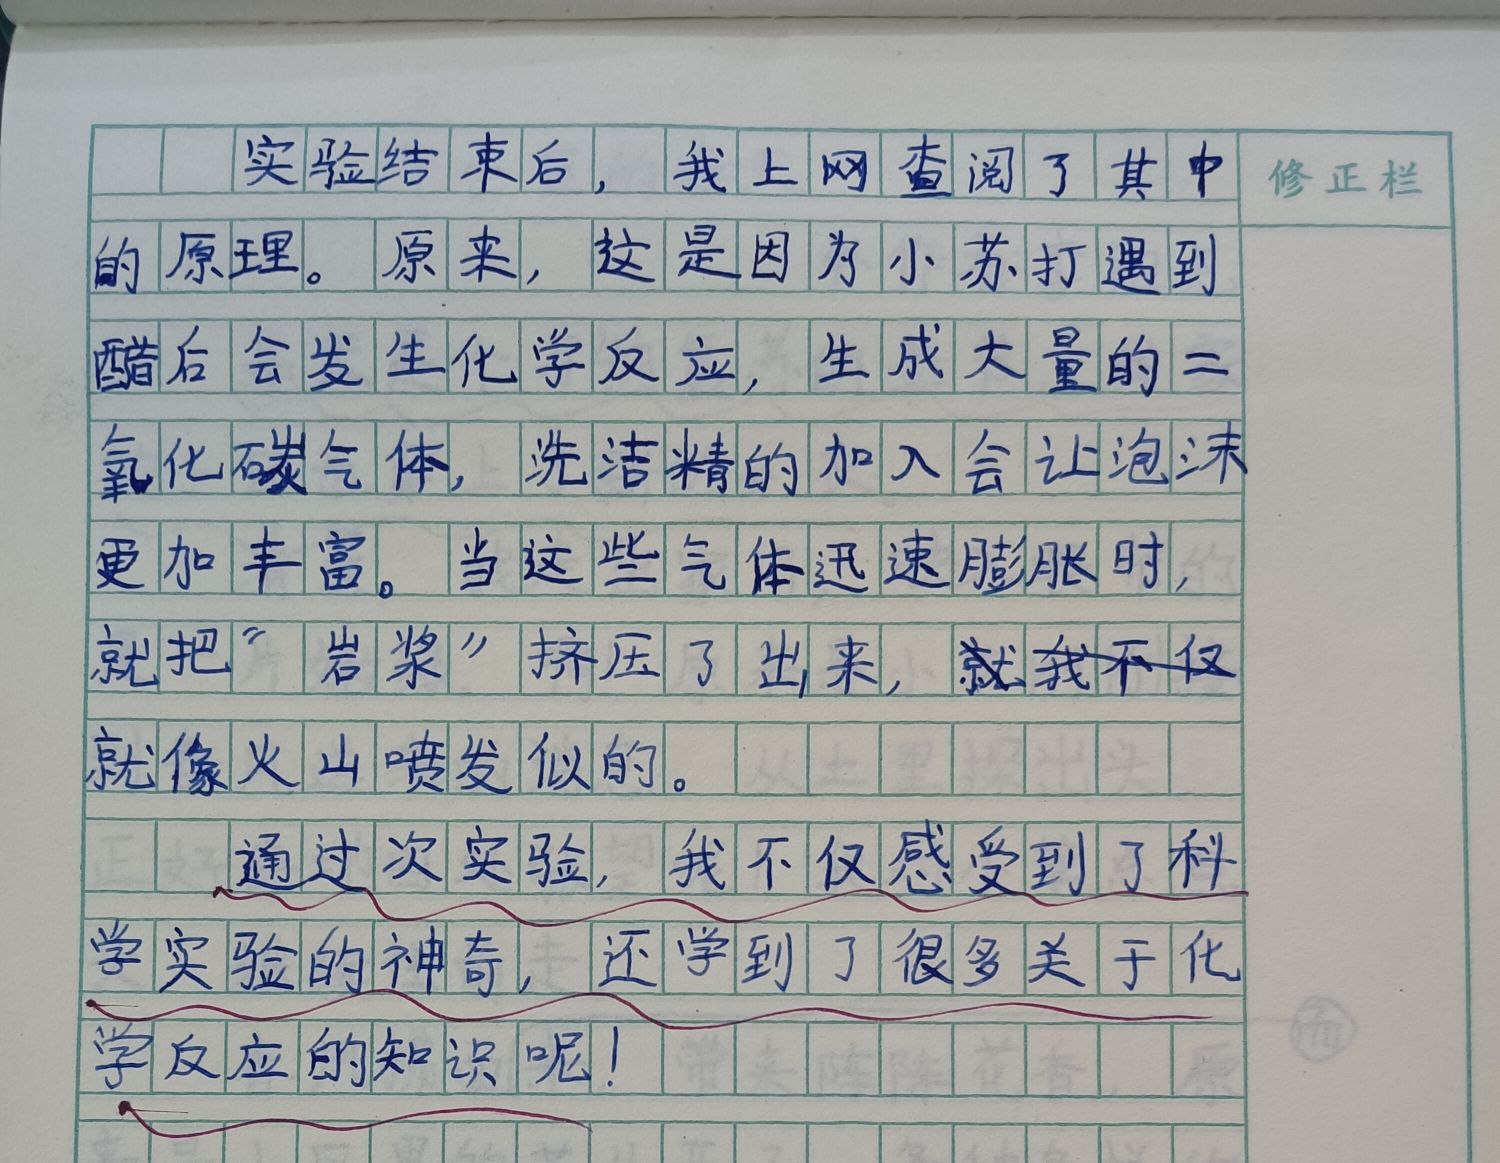 实验结束后，我上网查阅了其中
修正栏
的原理。原来，这是因为小苏打遇到
醋后会发生化学反应，生成大量的二
氧化碳气体，洗洁精的加入会让泡沫
更加丰富。当这些气体迅速膨胀时，
就把“岩浆”挤压了出来，就我不仅
就像火山喷发似的。
通过次实验，我不仅感受到了科
学实验的神奇，还学到了很多关于化
学反应的知识呢！